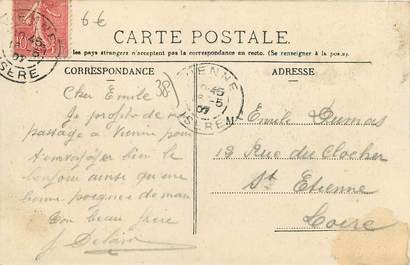 6€
CARTE POSTALE.
Les pays étrangers n'acceptent pas la correspondance au recto. (Se renseigner à la poste).
CORRESPONDANCE
ADRESSE
38
VIENNE
ISÈRE
Cher Emile
Je profite de
passage à Vienne pour
t'envoyer bien le
bonjour ainsi qu'une
bonne poignée de main
Ton beau frère
M Emile Dumas
13 Rue du Clocher
St Etienne
Loire